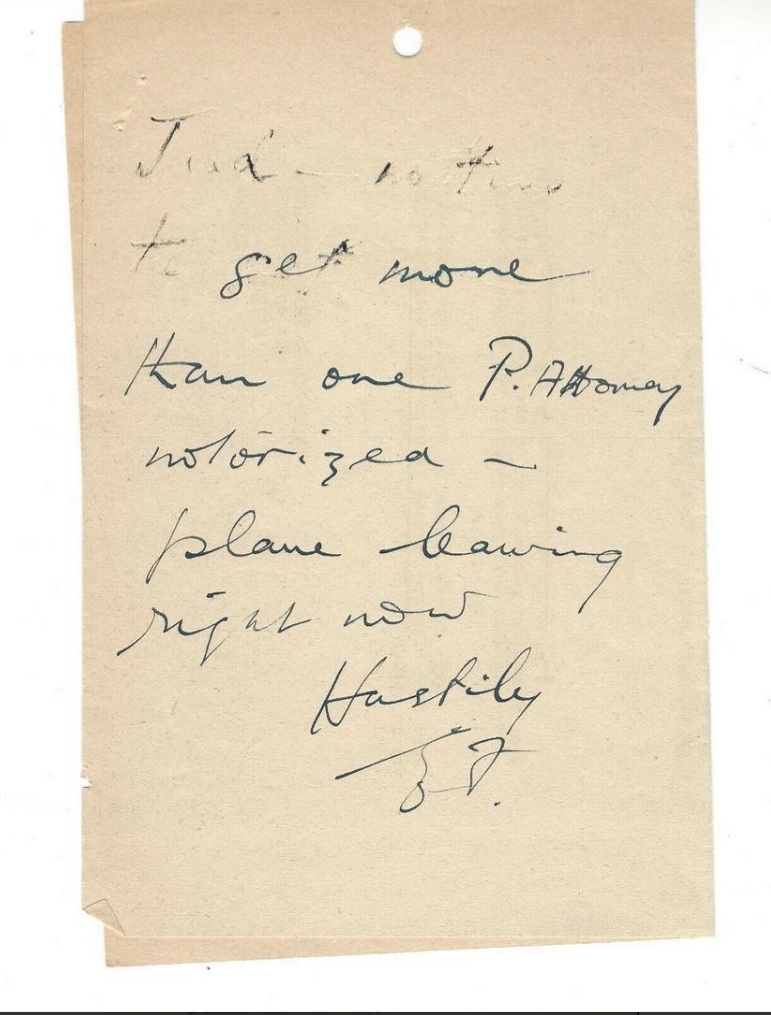 Jud - no time
to get more
than one P. Attorney
notorized -
plane leaving
right now
Hastily